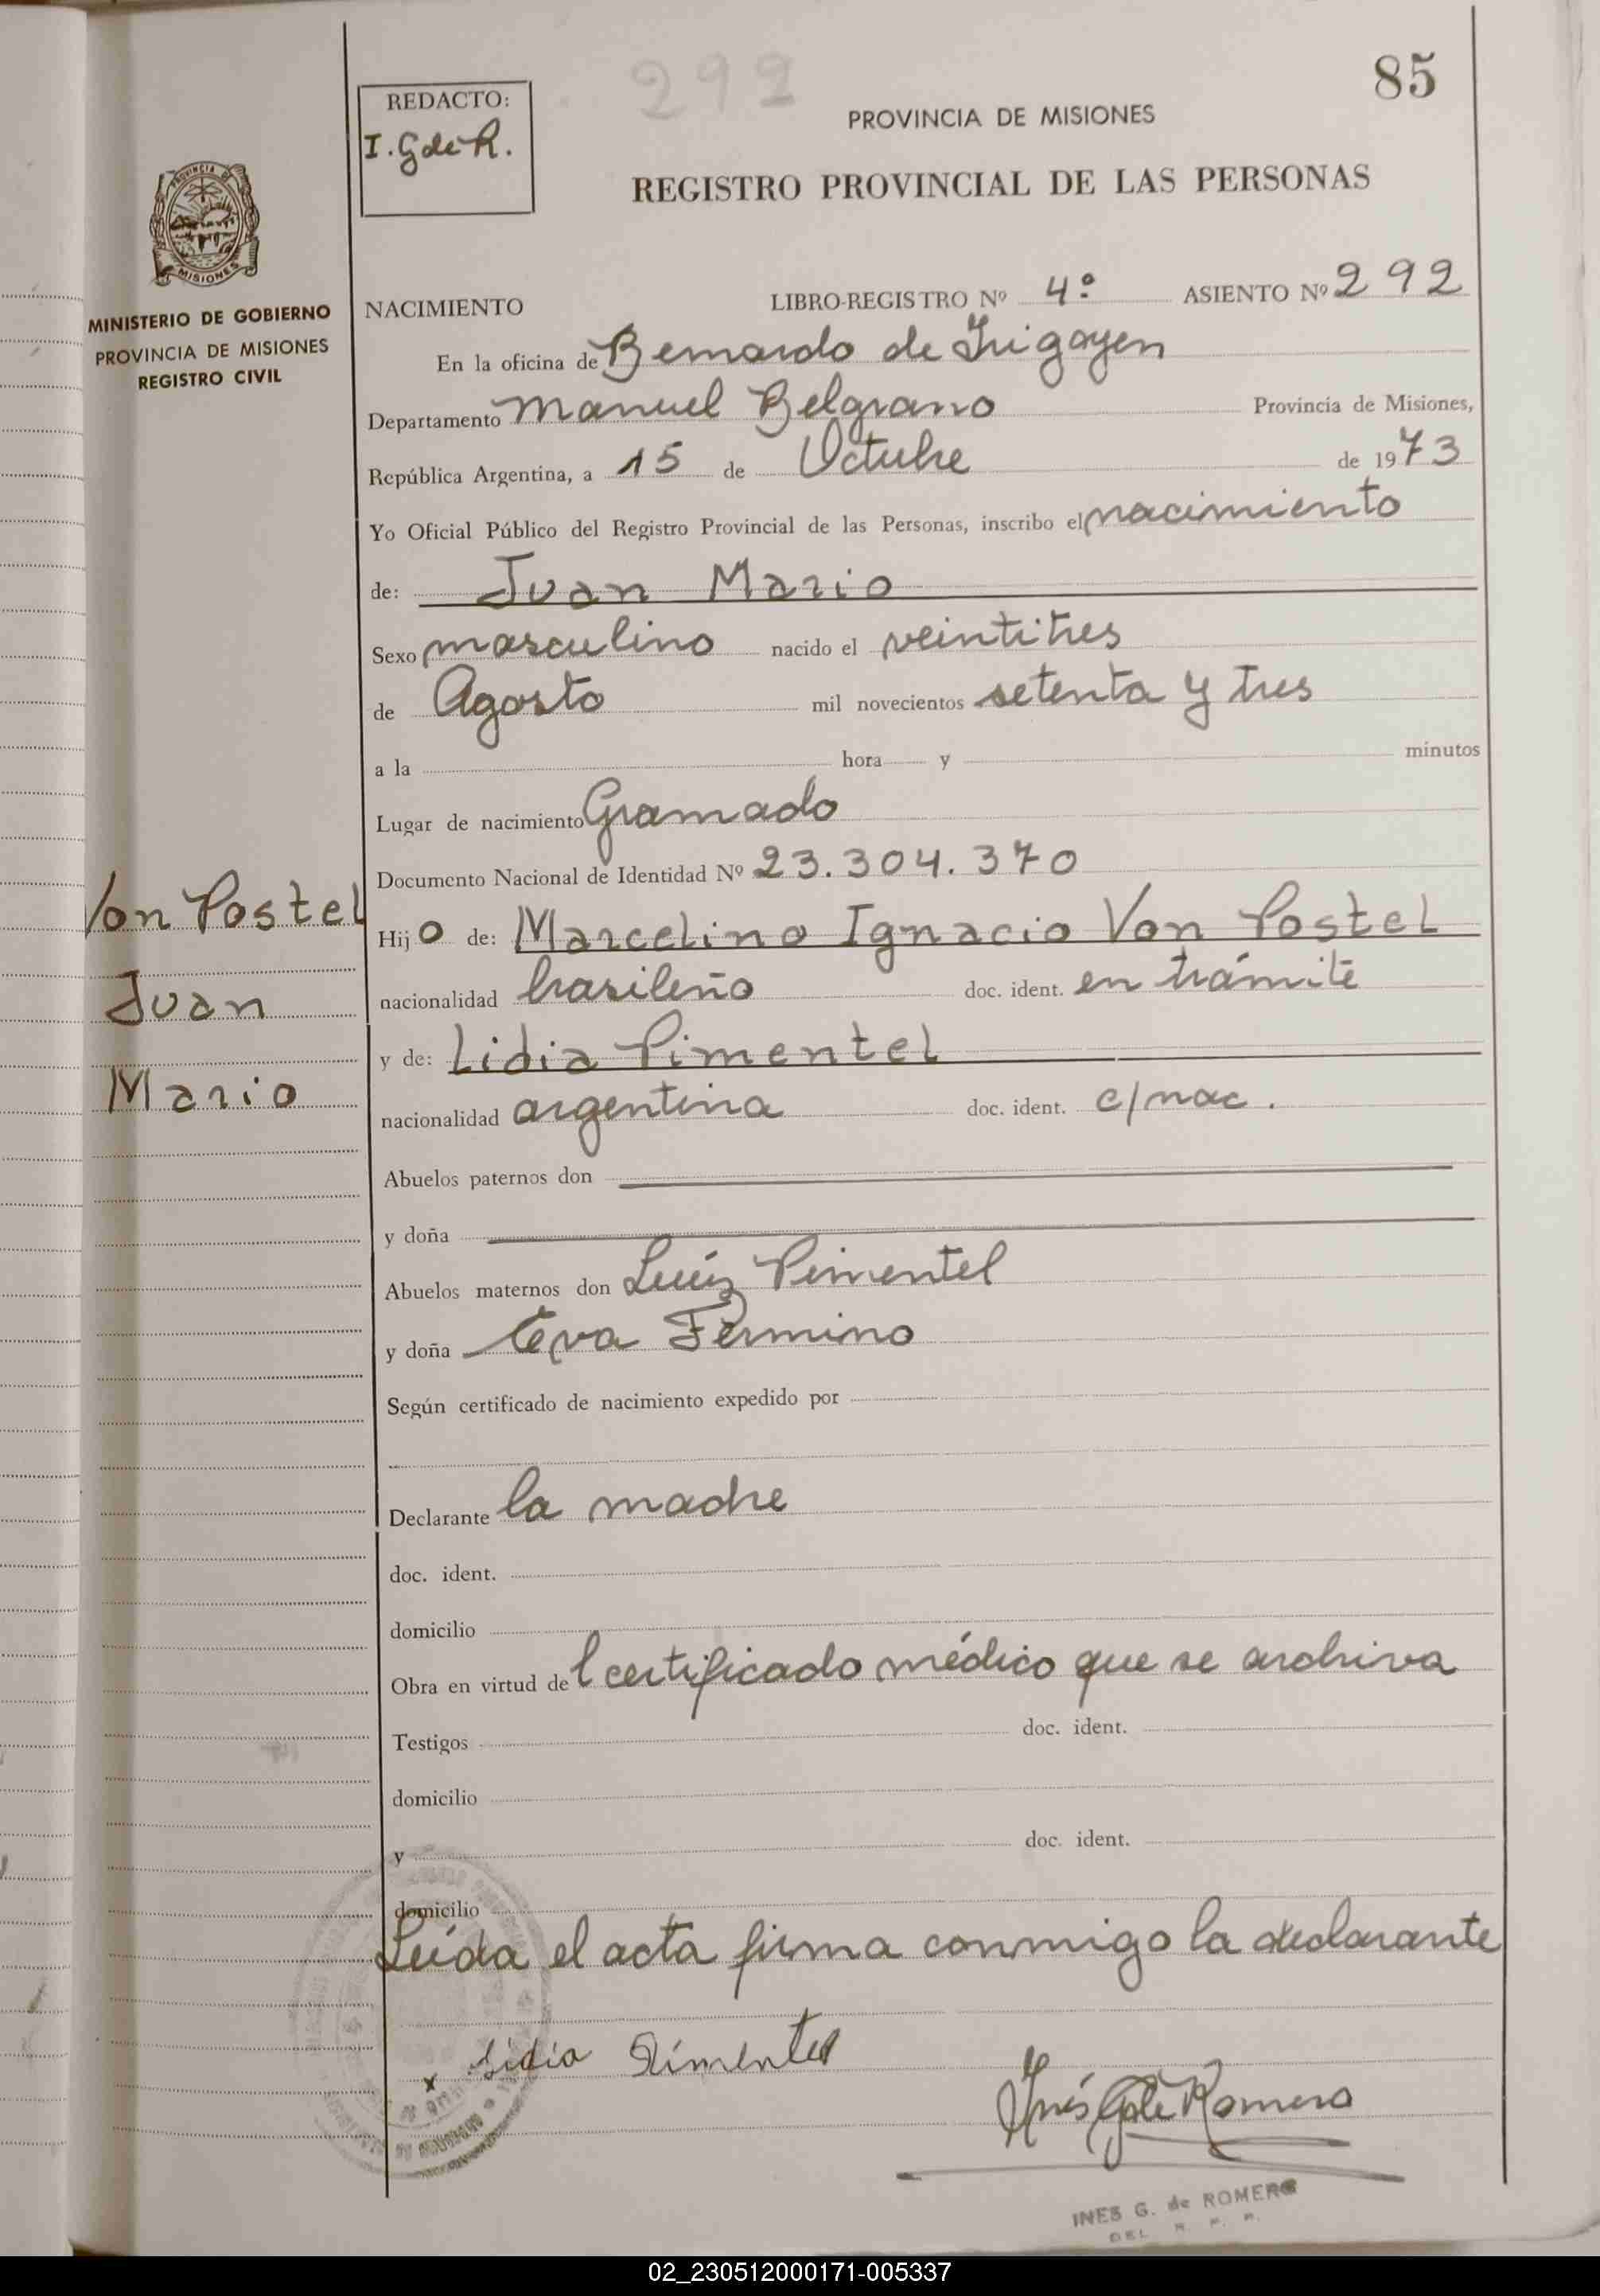 292
85
REDACTO:
I. G de R.
PROVINCIA DE MISIONES
REGISTRO PROVINCIAL DE LAS PERSONAS
PROVINCIA DE
MISIONES
MINISTERIO DE GOBIERNO
PROVINCIA DE MISIONES
REGISTRO CIVIL
NACIMIENTO LIBRO-REGISTRO Nº 4º ASIENTO Nº 292
En la oficina de Bernardo de Irigoyen
Departamento Manuel Belgrano Provincia de Misiones,
República Argentina, a 15 de Octubre de 1973
Yo Oficial Público del Registro Provincial de las Personas, inscribo el nacimiento
de: Juan Mario
Sexo masculino nacido el veintitres
de Agosto mil novecientos setenta y tres
a la hora y minutos
Lugar de nacimiento Gramado
Documento Nacional de Identidad Nº 23.304.370
Von Postel
Hijo de: Marcelino Ignacio Von Postel
Juan
nacionalidad brasileño doc. ident. en trámite
y de: Lidia Pimentel
Mario
nacionalidad argentina doc. ident. c/nac.
Abuelos paternos don
y doña
Abuelos maternos don Luíz Pimentel
y doña Eva Fermino
Según certificado de nacimiento expedido por
Declarante la madre
doc. ident.
domicilio
Obra en virtud del certificado médico que se archiva
Testigos doc. ident.
domicilio
y doc. ident.
domicilio
Leída el acta firma conmigo la declarante
x Lidia Pimentel
Inés G de Romero
INES G. de ROMERO
DEL R. P. P.
02_230512000171-005337